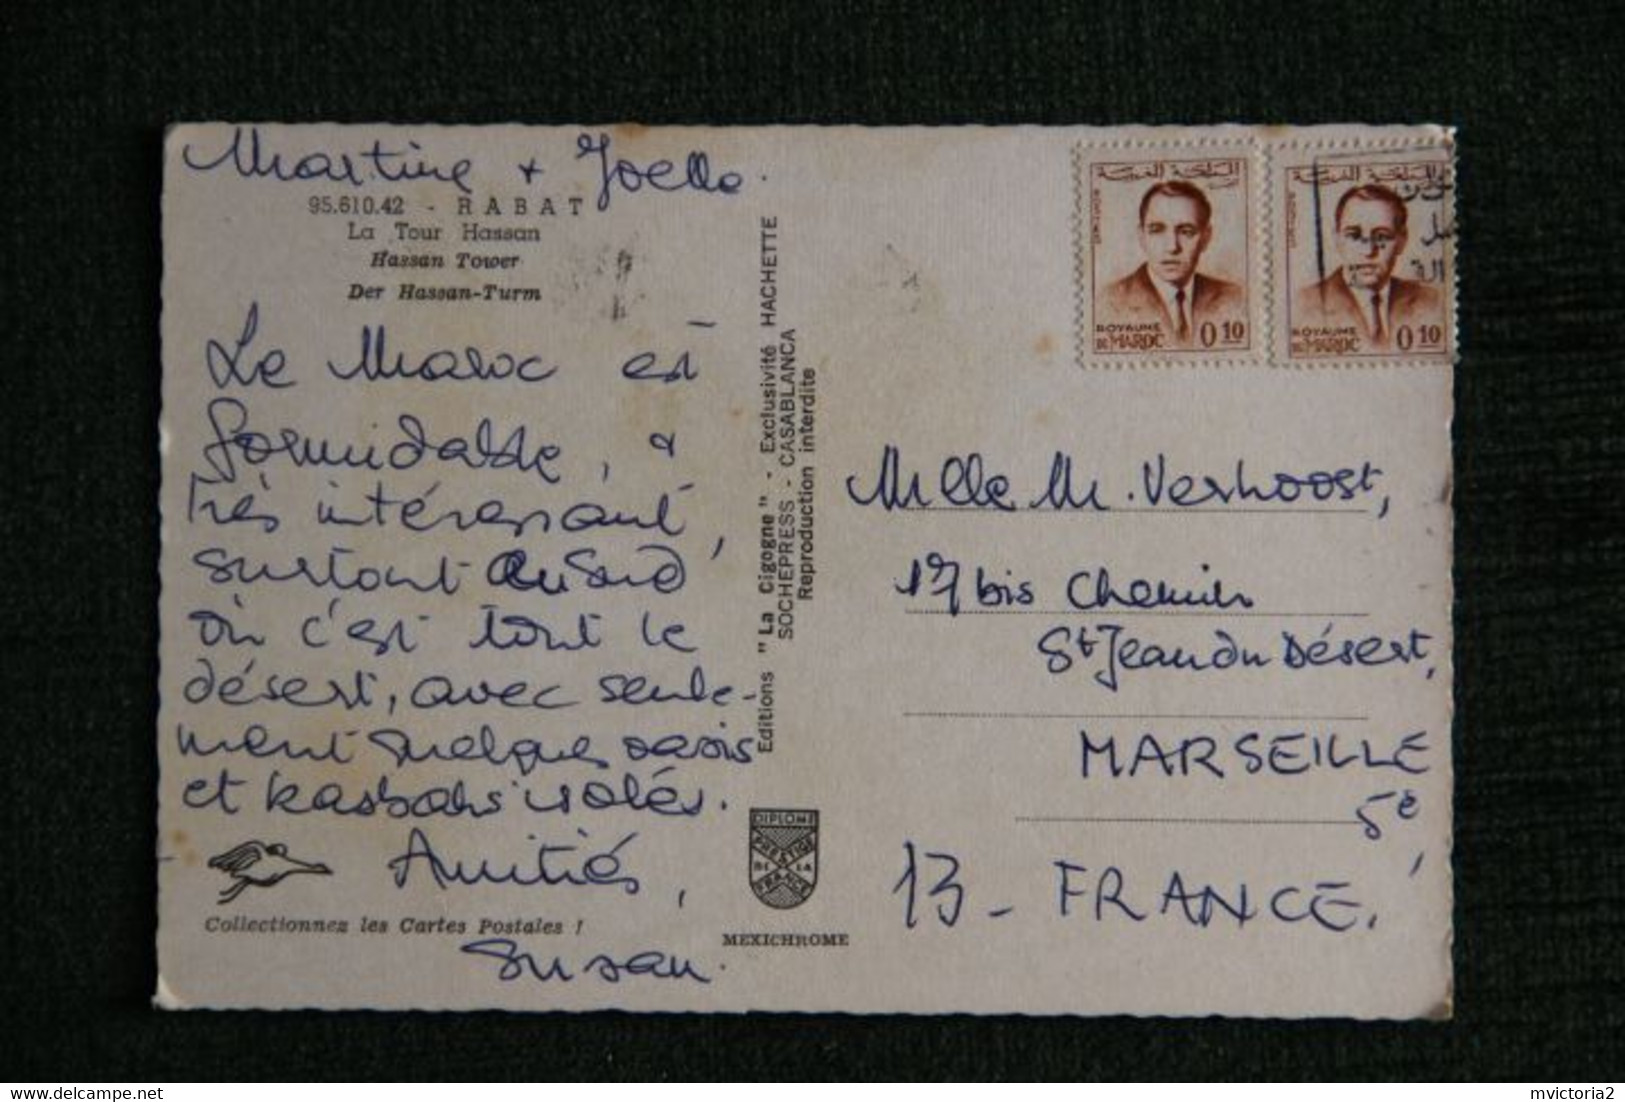 Martine + Joelle.
95.610.42 - RABAT
La Tour Hassan
Hassan Tower
Der Hassan-Turm
Le Maroc est
formidable, &
très intéressant,
surtout au Sud
où c'est tout le
désert, avec seule-
ment quelques oasis
et kasbahs isolés.
Amitiés,
Susan.
Collectionnez les Cartes Postales !
Editions "La Cigogne" - Exclusivité HACHETTE
SOCHEPRESS - CASABLANCA
Reproduction interdite
DIPLOME
PRESTIGE
DE LA
FRANCE
MEXICHROME
المملكة المغربية
ROYAUME
DE MAROC
0.10
المملكة المغربية
ROYAUME
DE MAROC
0.10
Mlle M. Verhoost,
17 bis Chemin
St Jean du Désert,
MARSEILLE
5e,
13 - FRANCE.
mvictoria2